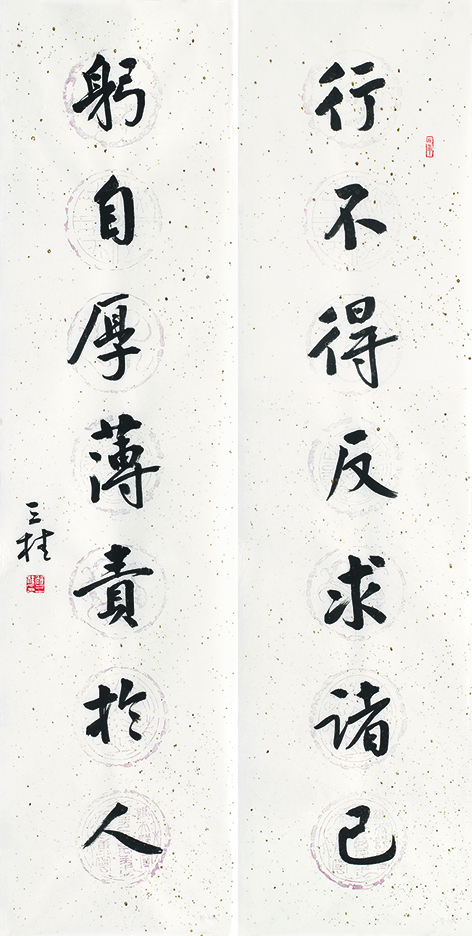 行不得反求诸己
躬自厚薄責於人
三桂